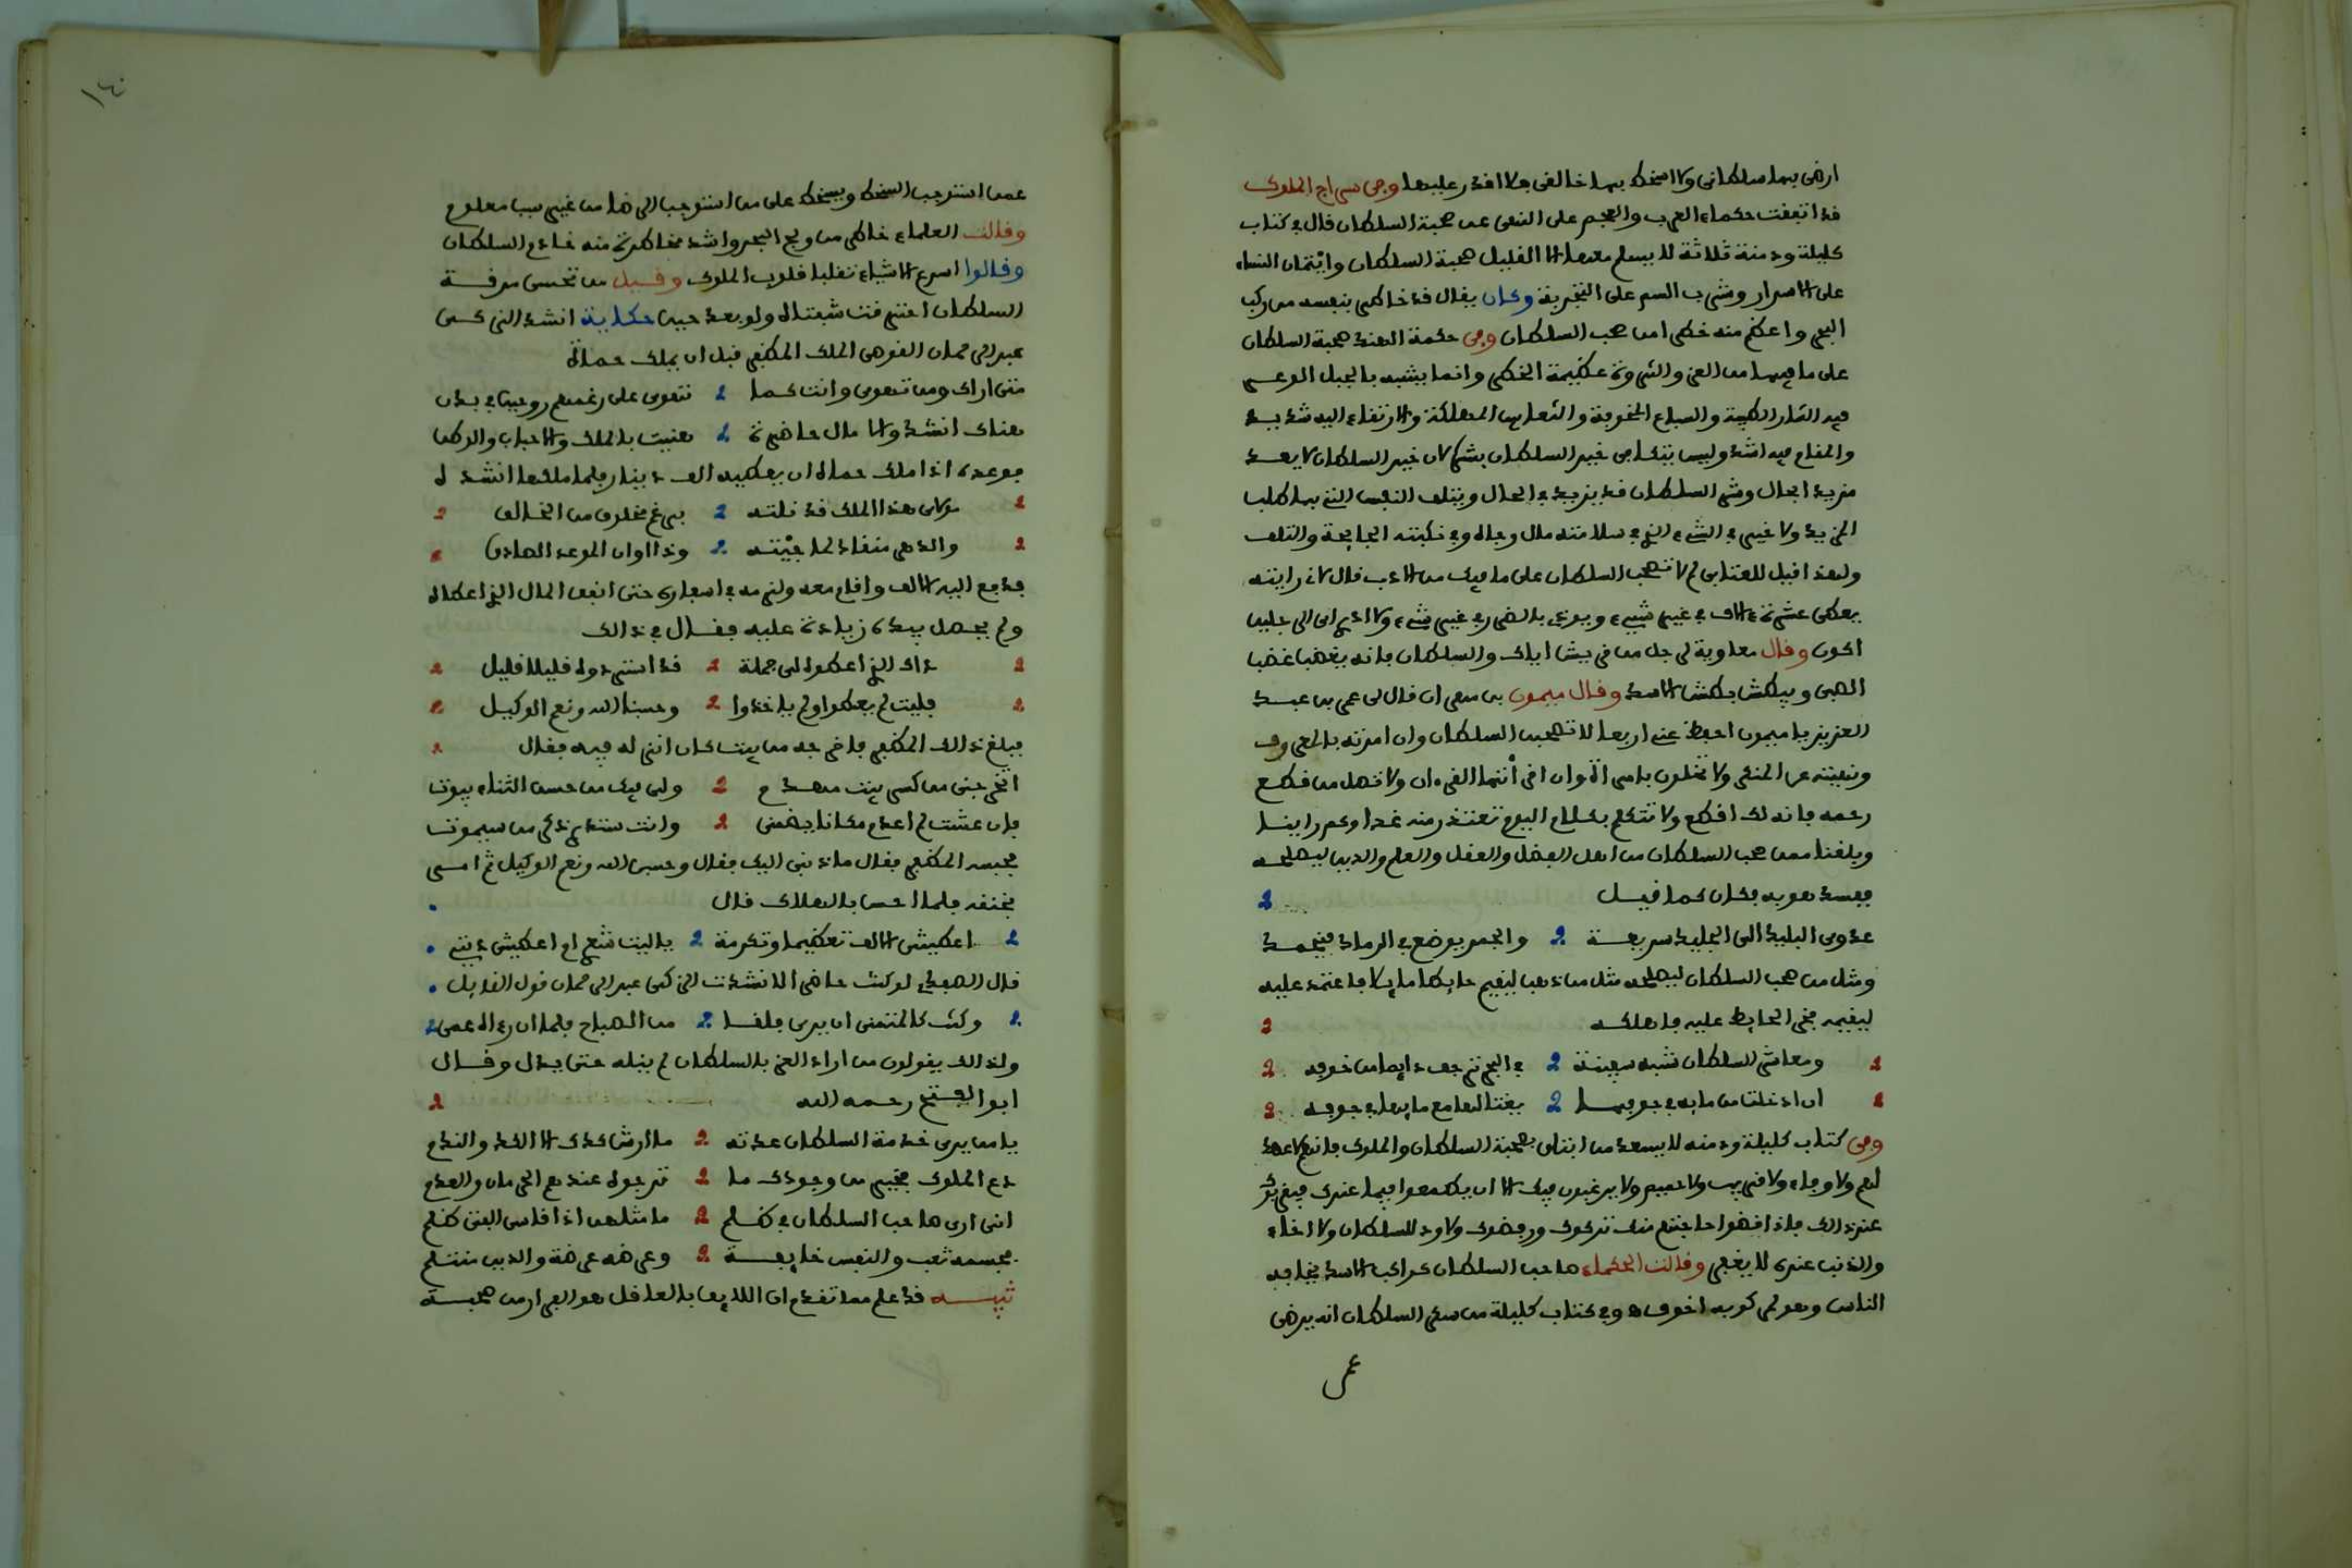 ارضى بها سلطانى ولا اسخط بها خالفى ما افدر عليها وفى سراج الملوك
فد اتففت حكماء العرب والعجم على النهى عن صحبة السلطان فال فى كتاب
كليلة ودمنة ثلاثة لا يسلم معها الا الفليل صحبة السلطان وايتمان النساء
على الاسرار وشرب السم على التجربة وكان يفال فد خاطر بنفسه من ركب
البحر واعظم منه خطرا من صحب السلطان وفى حكمة الهند صحبة السلطان
على ما فيها من العز والثروة عظيمة الخطر وانما يشبه بالجبل الوعر
فيه الثمار الطيبة والسباع المخوفة والثعابين المهلكة والارتفاء اليه شديد
والمفام فيه اشد وليس يتكافى خير السلطان بشره لان خير السلطان لا يعد
مزيد الحال وشر السلطان فد يزيد فى الحال ويتلف النفس التى بها طلب
المزيد ولا خير فى الشىء الذى فى سلامته مال وجاه وفى نكبته الجايحة والتلف
ولهذا فيل للعتابى لم لا تصحب السلطان على ما فيك من الادب فال لانى رايته
يعطى عشرة ءالاف فى غير شىء ويرمى بالضر فى غير شىء ولا ادرى اى الرجلين
اكون وفال معاوية لرجل من فريش اياك والسلطان فانه يغضب غضب
الصبى ويبطش بطش الاسد وفال ميمون بن مهران فال لى عمر بن عبد
العزيز يا ميمون احفظ عنى اربعا لا تصحبن السلطان وان امرته بالمعروف
ونهيته عن المنكر ولا تخلون بامراة وان افراتها الفرءان ولا تصل من فطع
رحمه فانه لك افطع ولا تتكلم بكلام اليوم تعتذر منه غدا وكم راينا
وبلغنا ممن صحب السلطان من اهل الفضل والعفل والعلم والدين ليصلحه
ففسد هو به فكان كما فيل
عدوى البليد الى الجليد سريعة والجمر يوضع فى الرماد فيخمد
ومثل من صحب السلطان ليصلحه مثل من ذهب ليفيم حايطا مايلا فاعتمد عليه
ليفيمه فخر الحايط عليه فاهلكه
ومعاشر السلطان شبه سفينة فى البحر ترجف دايما من خوفه
ان ادخلت من مايه فى جوفها يغتالها مع مايها فى جوفه
وفى كتاب كليلة ودمنه لا يسعد من ابتلى بصحبة السلطان والملوك فانهم لا عهد
لهم ولا وفاء ولا فريب ولا حميم ولا يرغبون فيك الا ان يطمعوا فيما عندك فيفربوك
عند ذلك فاذا افضوا حاجتهم منك تركوك ورفضوك ولا ود للسلطان ولا اخاء
والذنب عنده لا يغفر وفالت الحكماء صاحب السلطان كراكب الاسد يخافه
الناس وهو لمركوبه اخوف وفى كتاب كليلة من سفم السلطان انه يرضى
عمن
١٤٠
عمن استوجب السخط ويسخط على من استوجب الرضا من غير سبب معلوم
وفالت العلماء خاطر من ولج البحر واشد مخاطرة منه خادم السلطان
وفالوا اسرع الاشياء تفلبا فلوب الملوك وفيل من تحسى مرفة
السلطان احترفت شفتاه ولو بعد حين حكاية انشد الزكى
عبد الرحمان الفوصى الملك المظفر فبل ان يملك حماة
متى اراك ومن تهوى وانت كما تهوى على رغمهم روحين فى بدن
هناك انشد والامال حاضرة هنيت بالملك والاحباب والوطن
فوعده اذا ملك حماة ان يعطيه الف دينار فلما ملكها انشد له
مولاى هذا الملك فد نلته برغم مخلوف من الخالف
والدهر منفاد لما شيته وذا اوان الموعد الصادق
فدفع اليه الالف وافام معه ولزمه فى اسفاره حتى انفف المال الذى اعطاه
ولم يحصل بيده زيادة عليه ففال فى ذالك
ذاك الذى اعطوه لى جملة فد استردوه فليلا فليل
فليت لم يعطوا ولم ياخذوا وحسبنا الله ونعم الوكيل
فبلغ ذالك المظفر فاخرجه من بيت كان انزله فيه ففال
اتخرجنى من كسر بيت مهدم ولى فيك من حسن الثناء بيوت
فان عشت لم اعدم مكانا يضمنى وانت ستدرى ذكر من سيموت
فحبسه المظفر ففال ما ذنبى اليك ففال وحسبى الله ونعم الوكيل ثم امر
بخنفه فلما احس بالهلاك فال
اعطيتنى الالف تعظيما وتكرمة ياليت شعرى ام اعطيتنى ديتى
فال الصفدى لو كنت حاضرا لانشدت الزكى عبد الرحمان فول الفايل
وكنت كالمتمنى ان يرى فلفا من الصباح فلما ان رءاه عمى
ولذالك يفولون من اراد العز بالسلطان لم ينله حتى يذل وفال
ابو الفتح رحمه الله
يا من يرى خدمة السلطان عدته ما ارش كدك الا الكد والندم
دع الملوك فخير من وجودك ما ترجوه عندهم الحرمان والعدم
انى ارى صاحب السلطان فى ظلم ما مثلهن اذا فاسى الفتى ظلم
فجسمه تعب والنفس خايفة وعرضه عرضة والدين منثلم
تنبيه فد علم مما تفدم ان اللايف بالعافل هو الفرار من صحبته